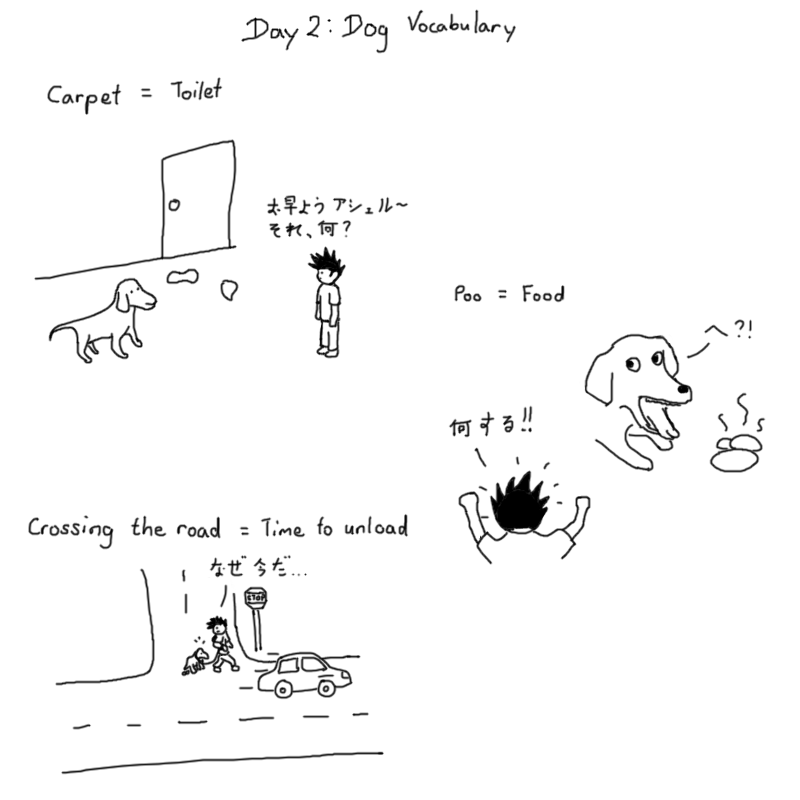 Day 2: Dog Vocabulary
Carpet = Toilet
お早よう アシェル〜
それ、何?
Poo = Food
へ?!
何する!!
Crossing the road = Time to unload
なぜ今だ...
STOP